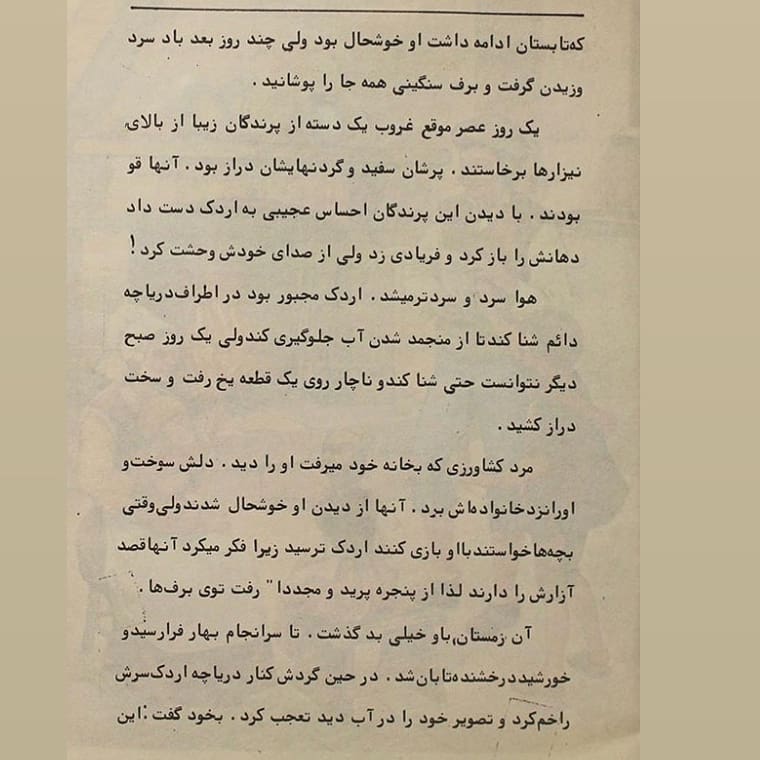 که‌تابستان ادامه داشت او خوشحال بود ولی چند روز بعد باد سرد
وزیدن گرفت و برف سنگینی همه جا را پوشانید .
یک روز عصر موقع غروب یک دسته از پرندگان زیبا از بالای
نیزارها برخاستند . پرشان سفید و گردنهایشان دراز بود . آنها قو
بودند . با دیدن این پرندگان احساس عجیبی به اردک دست داد
دهانش را باز کرد و فریادی زد ولی از صدای خودش وحشت کرد !
هوا سرد و سردترمیشد . اردک مجبور بود در اطراف‌دریاچه
دائم شنا کندتا از منجمد شدن آب جلوگیری کندولی یک روز صبح
دیگر نتوانست حتی شنا کندو ناچار روی یک قطعه یخ رفت و سخت
دراز کشید .
مرد کشاورزی که بخانه خود میرفت او را دید . دلش سوخت‌و
اورانزدخانواده‌اش برد . آنها از دیدن او خوشحال شدندولی‌وقتی
بچه‌هاخواستندبااو بازی کنند اردک ترسید زیرا فکر میکرد آنهاقصد
آزارش را دارند لذا از پنجره پرید و مجددا" رفت توی برف‌ها .
آن زمستان باو خیلی بد گذشت . تا سرانجام بهار فرارسیدو
خورشیددرخشنده‌تابان‌شد . در حین گردش کنار دریاچه اردک‌سرش
راخم‌کرد و تصویر خود را در آب دید تعجب کرد . بخود گفت : این